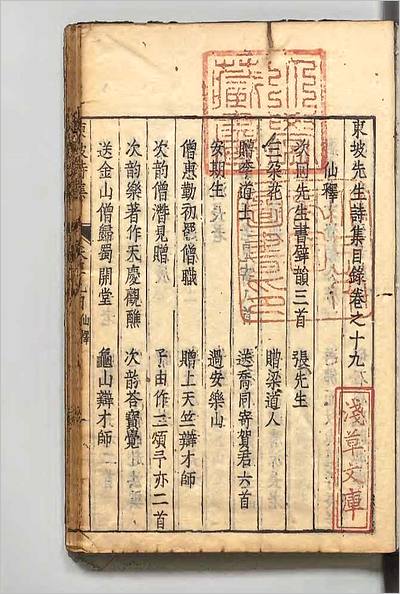 東坡先生詩集目錄卷之十九
仙釋
次囘先生書壁韻三首 張先生
三朵花 贈梁道人
贈李道士 送喬同寄賀君六首
安期生 過安樂山
僧惠勤初罷僧職 贈上天竺辯才師
次韵僧潛見贈 子由作二頌予亦二首
次韵樂著作天慶觀醮 次韵答寶覺
送金山僧歸蜀開堂 龜山辯才師
東坡詩集
仙釋
淺草文庫